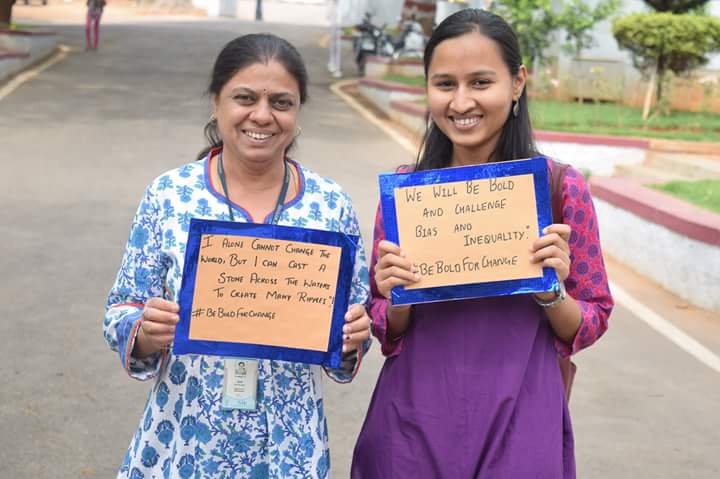 I ALONE CANNOT CHANGE THE
WORLD, BUT I CAN CAST A
STONE ACROSS THE WATERS
TO CREATE MANY RIPPLES"!
#BEBOLDFORCHANGE
WE WILL BE BOLD
AND CHALLENGE
BIAS AND
INEQUALITY."
#BEBOLDFORCHANGE